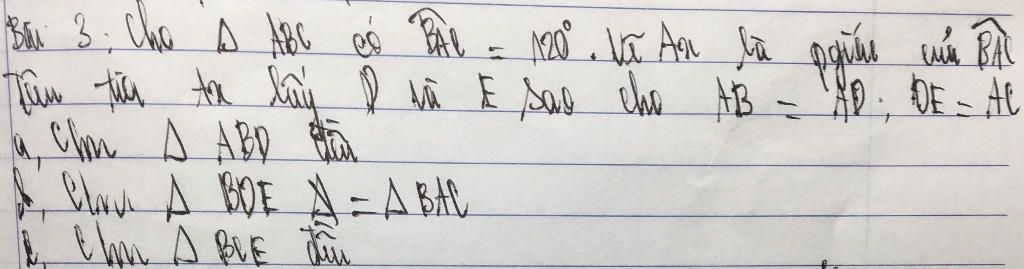 Bài 3: Cho Δ ABC có \widehat{BAC} = 120°. Vẽ Ax là pgiác của \widehat{BAC}
Trên tia Ax lấy D và E sao cho AB = AD; DE = AC
a, Cm Δ ABD đều
b, Cm Δ BDE = Δ BAC
c, Cm Δ BCE đều